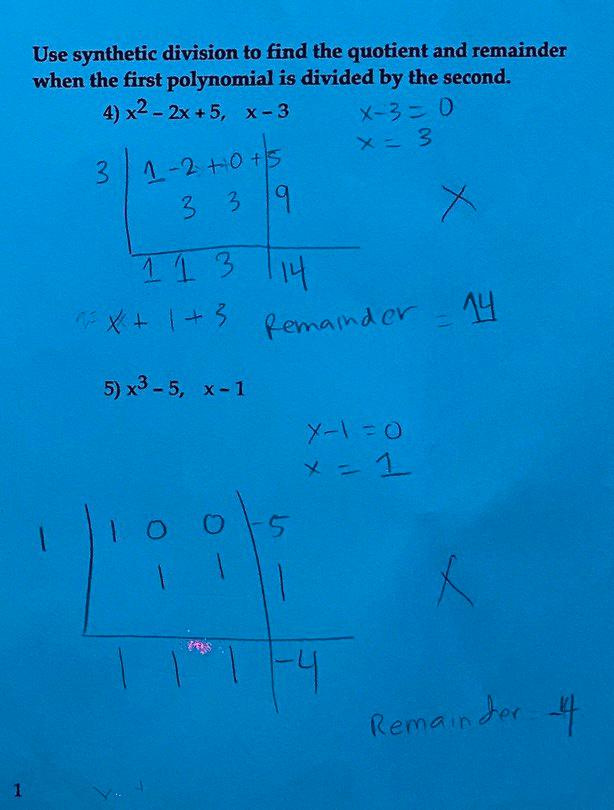 Use synthetic division to find the quotient and remainder
when the first polynomial is divided by the second.
4) x² – 2x + 5, x – 3
x-3 = 0
x = 3
3 1 -2 +0 +5
3 3 9
X
1 1 3 14
x + 1 + 3 Remainder = 14
5) x³ – 5, x – 1
x-1 = 0
x = 1
1 1 0 0 -5
1 1 1
X
1 1 1 -4
Remainder -4
1